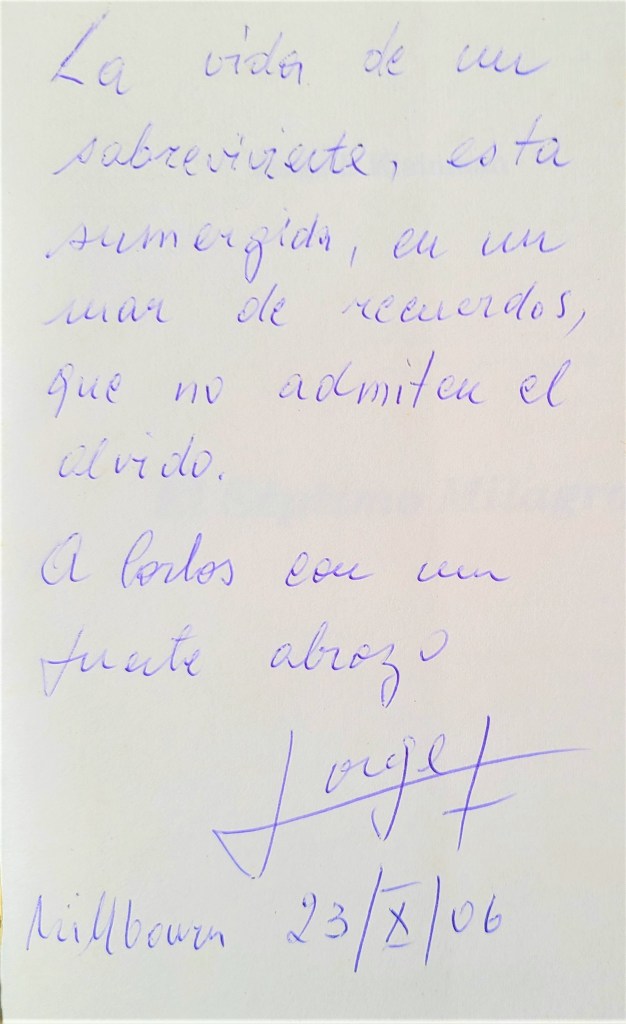 La vida de un
sobreviviente, esta
sumergida, en un
mar de recuerdos,
que no admiten el
olvido.
A Carlos con un
fuerte abrazo
Jorge
23/X/06